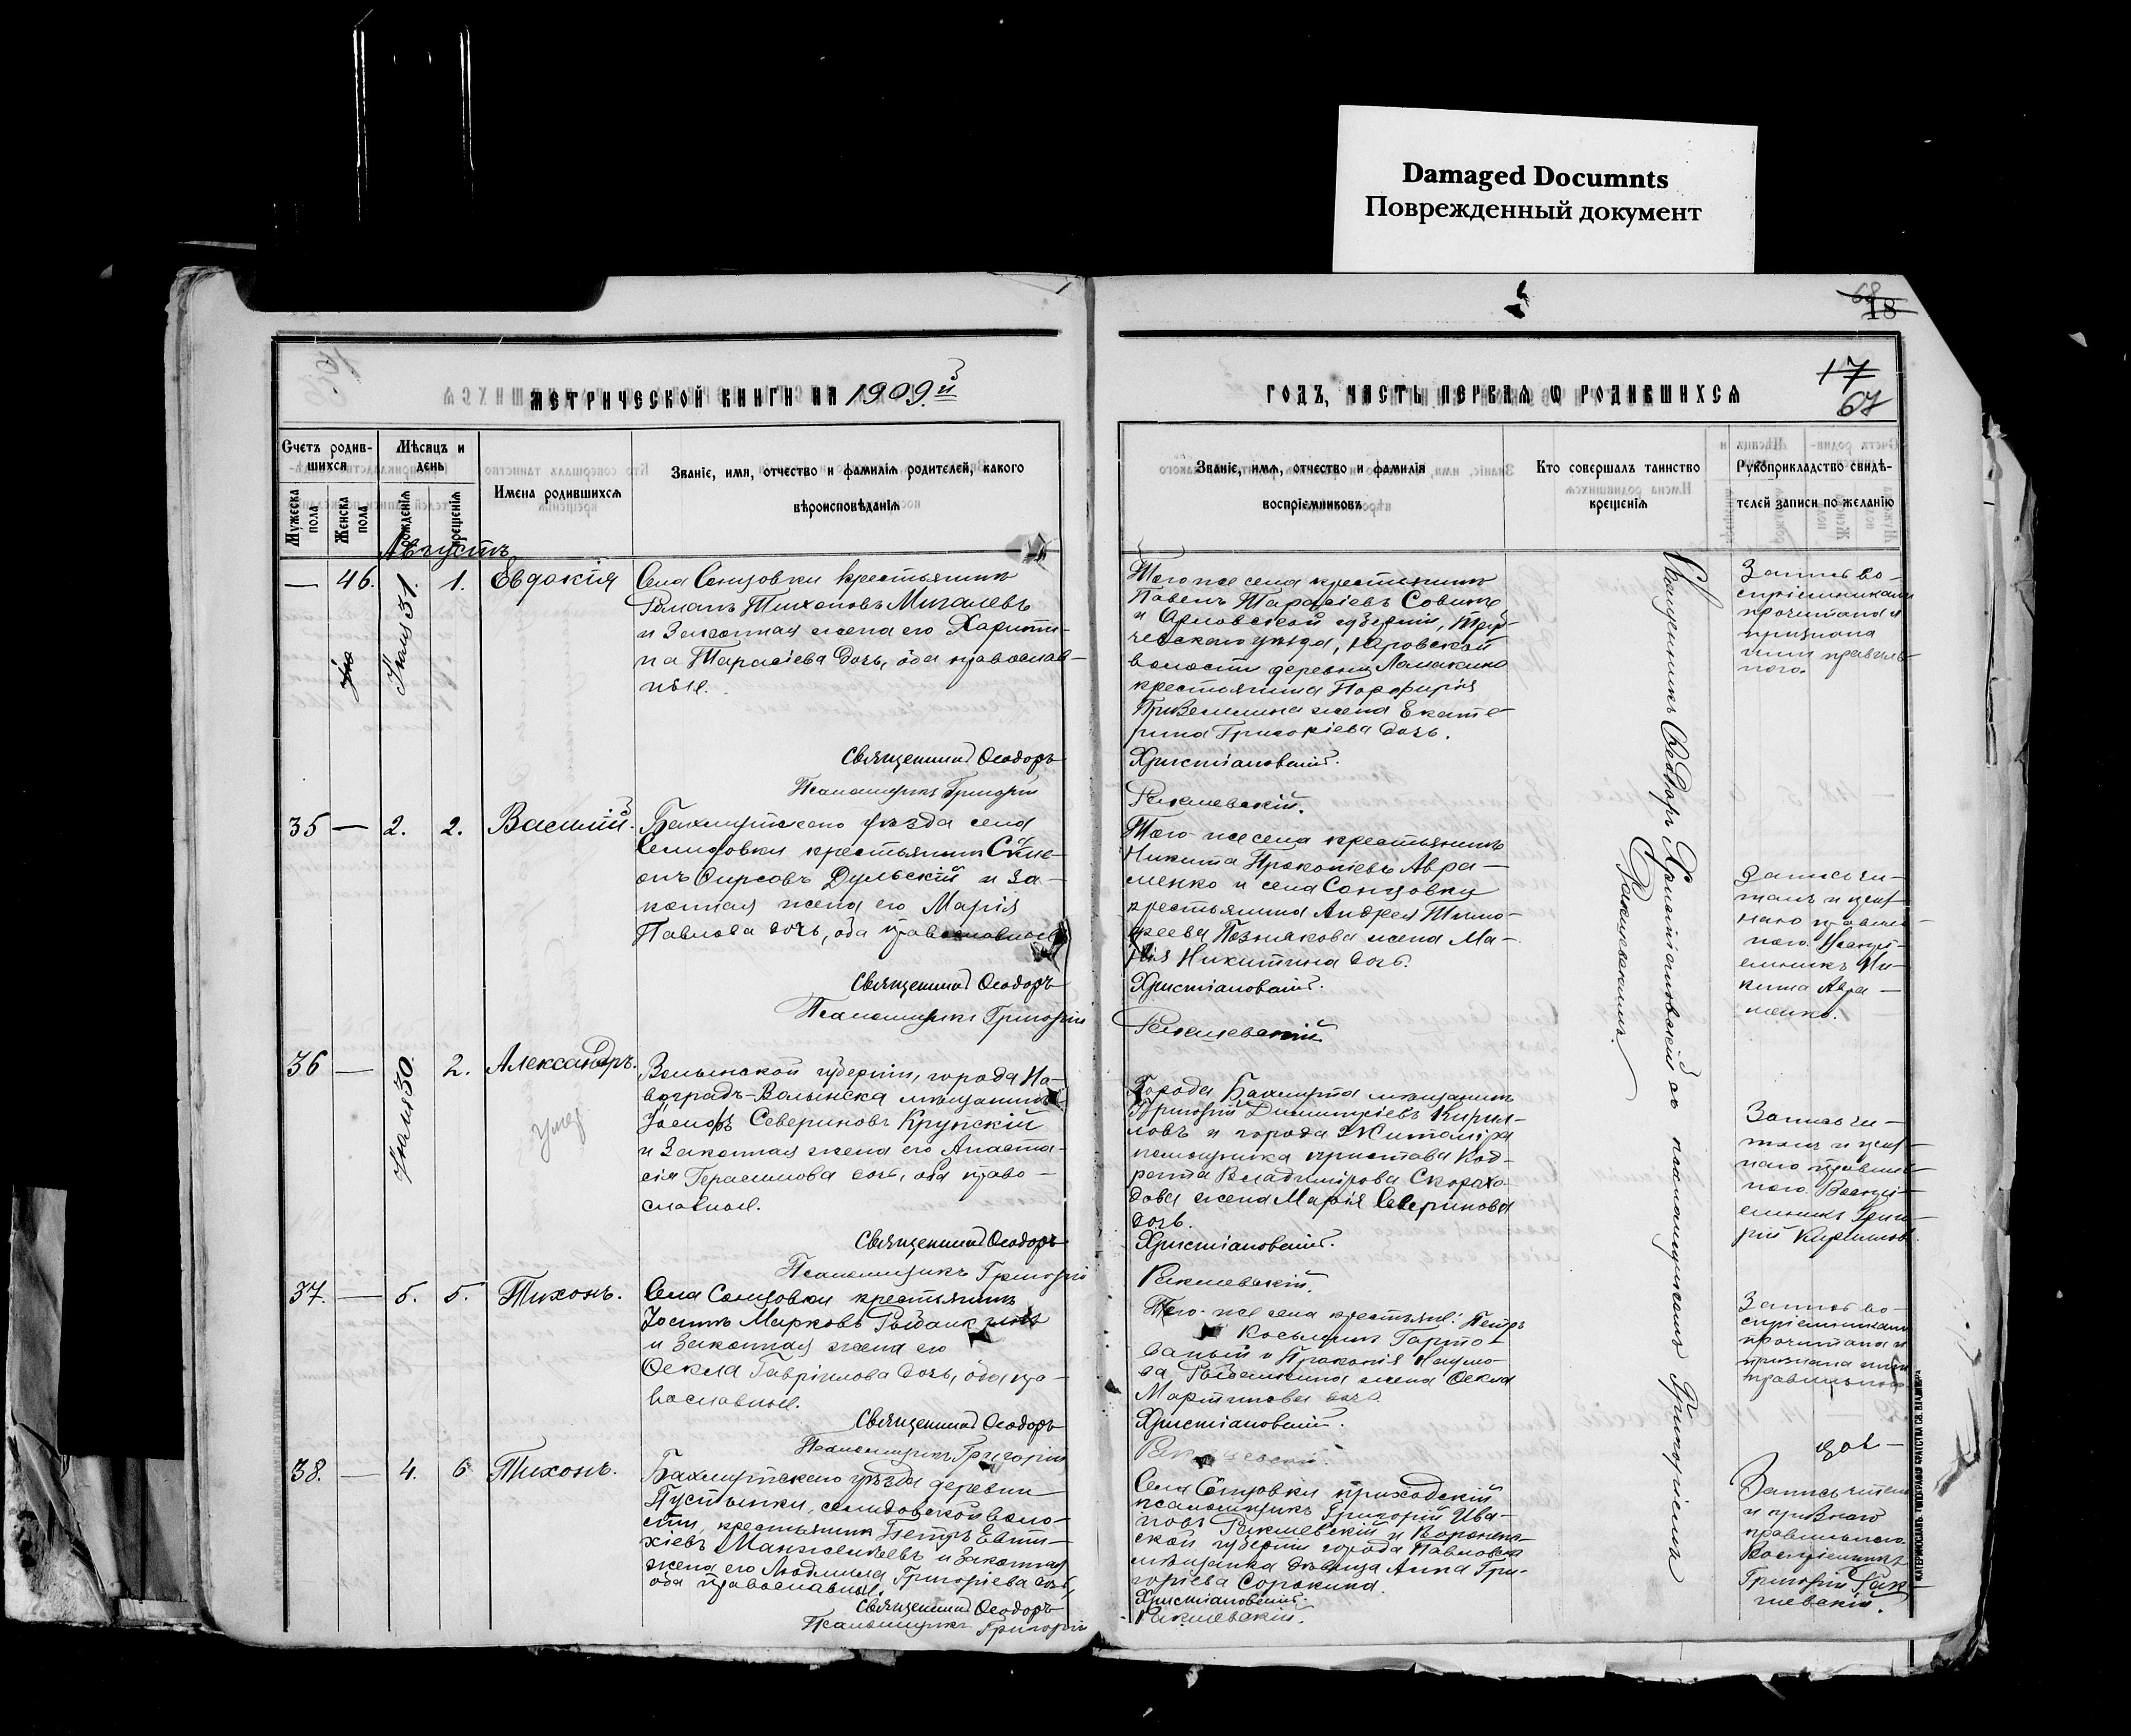 Damaged Documnts
Поврежденный документ
68
18
17
67
МЕТРИЧЕСКОЙ КНИГИ НА 1909й
ГОДЪ, ЧАСТЬ ПЕРВАЯ Ѡ РОДИВШИХСЯ
Счетъ родив-
шихся
Мужеска пола
Женска пола
Мѣсяцъ и
день
рожденія
крещенія
Имена родившихся
Званіе, имя, отчество и фамилія родителей, какого
вѣроисповѣданія
Званіе, имя, отчество и фамилія
воспріемниковъ
Кто совершалъ таинство
крещенія
Рукоприкладство свидѣ-
телей записи по желанію
Августъ
— 46. Іюля 31. 1. Евдокія
Села Сонцовки крестьянинъ
Романъ Тихоновъ Мигалевъ
и законная жена его Харити-
на Тарасіева дочь, оба православ-
ные.
Священникъ Ѳеодоръ
Псаломщикъ Григорій
Того же села крестьянинъ
Павелъ Тарасіевъ Совин
и Орловской губерніи,
уѣзда,
волости деревни Ламакино
крестьянина Порфирія
жена Екате-
рина Григоріева дочь.
Христіановскій.
Ракшевскій.
Запись во-
спріемниками
прочитана и
признана
ими правиль-
ною.
35 — 2. 2. Василій.
Бахмутскаго уѣзда села
Селидовки крестьянинъ Симе-
онъ Ѳирсовъ Дульскій и за-
конная жена его Марія
Павлова дочь, оба православные
Священникъ Ѳеодоръ
Псаломщикъ Григорій
Того же села крестьянинъ
Никита Прокопіевъ Авра-
менко и села Сонцовки
крестьянина Андрея Тимо-
ѳеева Познякова жена Ма-
рія Никитина дочь.
Христіановскій.
Ракшевскій.
Запись чи-
талъ и приз-
наю правиль-
ною. Воспрі-
емникъ Ни-
кита Авра-
менко.
36 — Іюля 30. 2. Александръ.
умер
Волынской губерніи, города Но-
воградъ-Волынска мѣщанинъ
Іосифъ Севериновъ Крупскій
и законная жена его Анаста-
сія Герасимова дочь, оба право-
славные.
Священникъ Ѳеодоръ
Псаломщикъ Григорій
Города Бахмута мѣщанинъ
Григорій Димитріевъ Кирил-
ловъ и города Житоміра
помощника пристава Код-
рата Владимірова Скорохо-
дова жена Марія Северинова
дочь.
Христіановскій.
Ракшевскій.
Запись чи-
талъ и приз-
наю правиль-
ною. Воспрі-
емникъ Григо-
рій Кирилловъ.
37. — 5. 5. Тихонъ.
Села Сонцовки крестьянинъ
Іосифъ Марковъ
и законная жена его
Ѳекла Гавріилова дочь, оба пра-
вославные.
Священникъ Ѳеодоръ
Псаломщикъ Григорій
Того же села крестьяне: Петръ
Косьминъ Гарто-
ваный и Прокопія Наумо-
ва жена Ѳекла
Мартинова дочь.
Христіановскій.
Ракшевскій.
Запись во-
спріемниками
прочитана и
признана ими
правильною.
38. — 4. 6 Тихонъ.
Бахмутскаго уѣзда деревни
Пустынки, селидовской воло-
сти, крестьянинъ Петръ Евти-
хіевъ и законная
жена его Людмила Григоріева дочь,
оба православные.
Священникъ Ѳеодоръ
Псаломщикъ Григорій
Села Сонцовки приходскій
псаломщикъ Григорій Ива-
новъ Ракшевскій и Воронеж-
ской губерніи города Павловска
мѣщанка дѣвица Анна Гри-
горіева Сорокина.
Христіановскій.
Ракшевскій.
Запись читалъ
и признаю
правильною.
Воспріемникъ
Григорій Рак-
шевскій.
Священникъ Ѳеодоръ Христіановскій съ псаломщикомъ Григоріемъ
Ракшевскимъ.
ЕКАТЕРИНОСЛАВЪ. ТИПОГРАФІЯ БРАТСТВА СВ. ВЛАДИМІРА